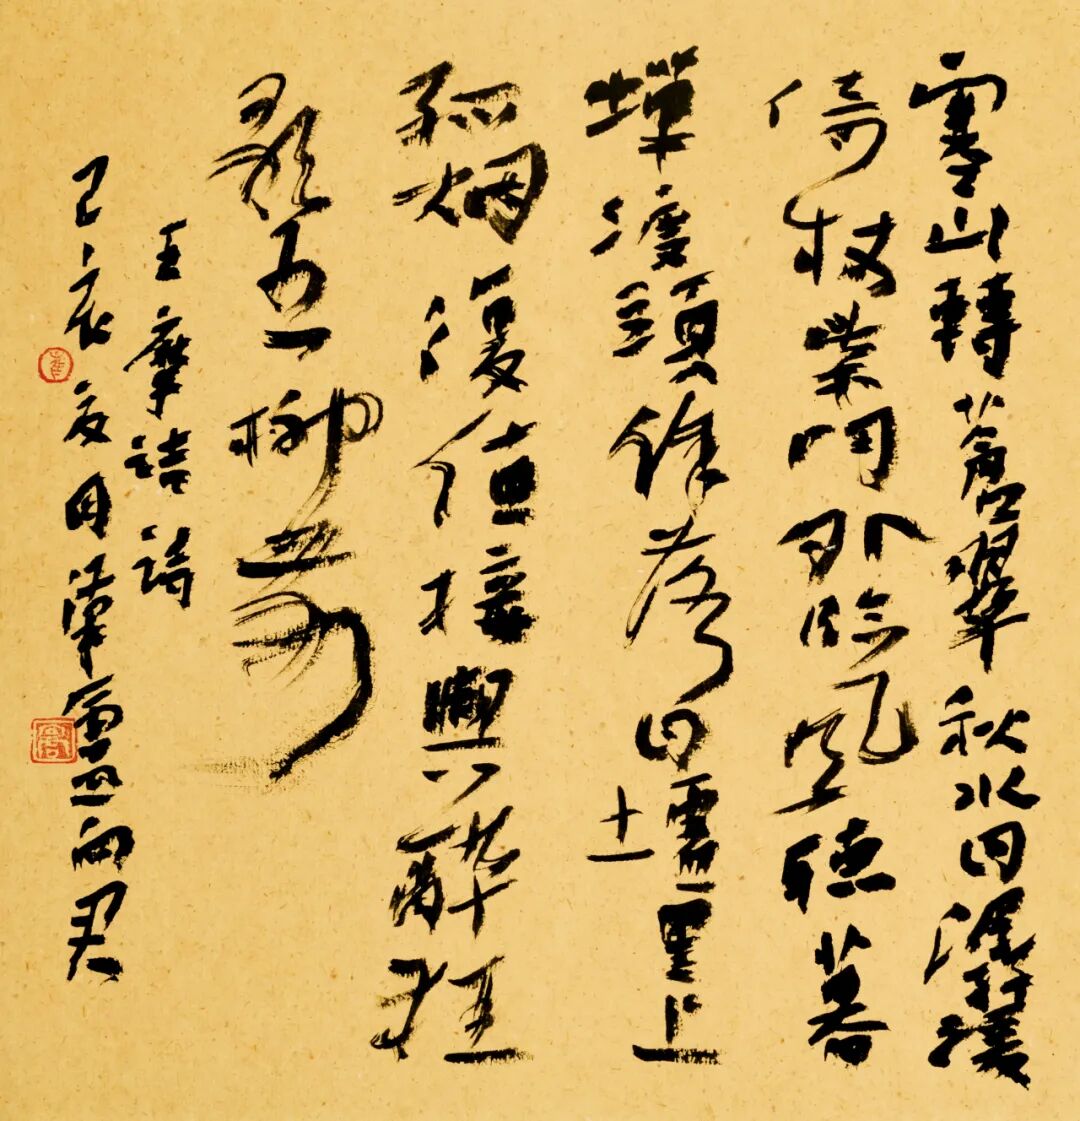 寒山轉蒼翠秋水日潺湲
倚杖柴門外臨風聽暮
蟬渡頭餘落日墟里上
孤烟復值接輿醉狂
歌五柳前
王摩詰詩
己亥夏月